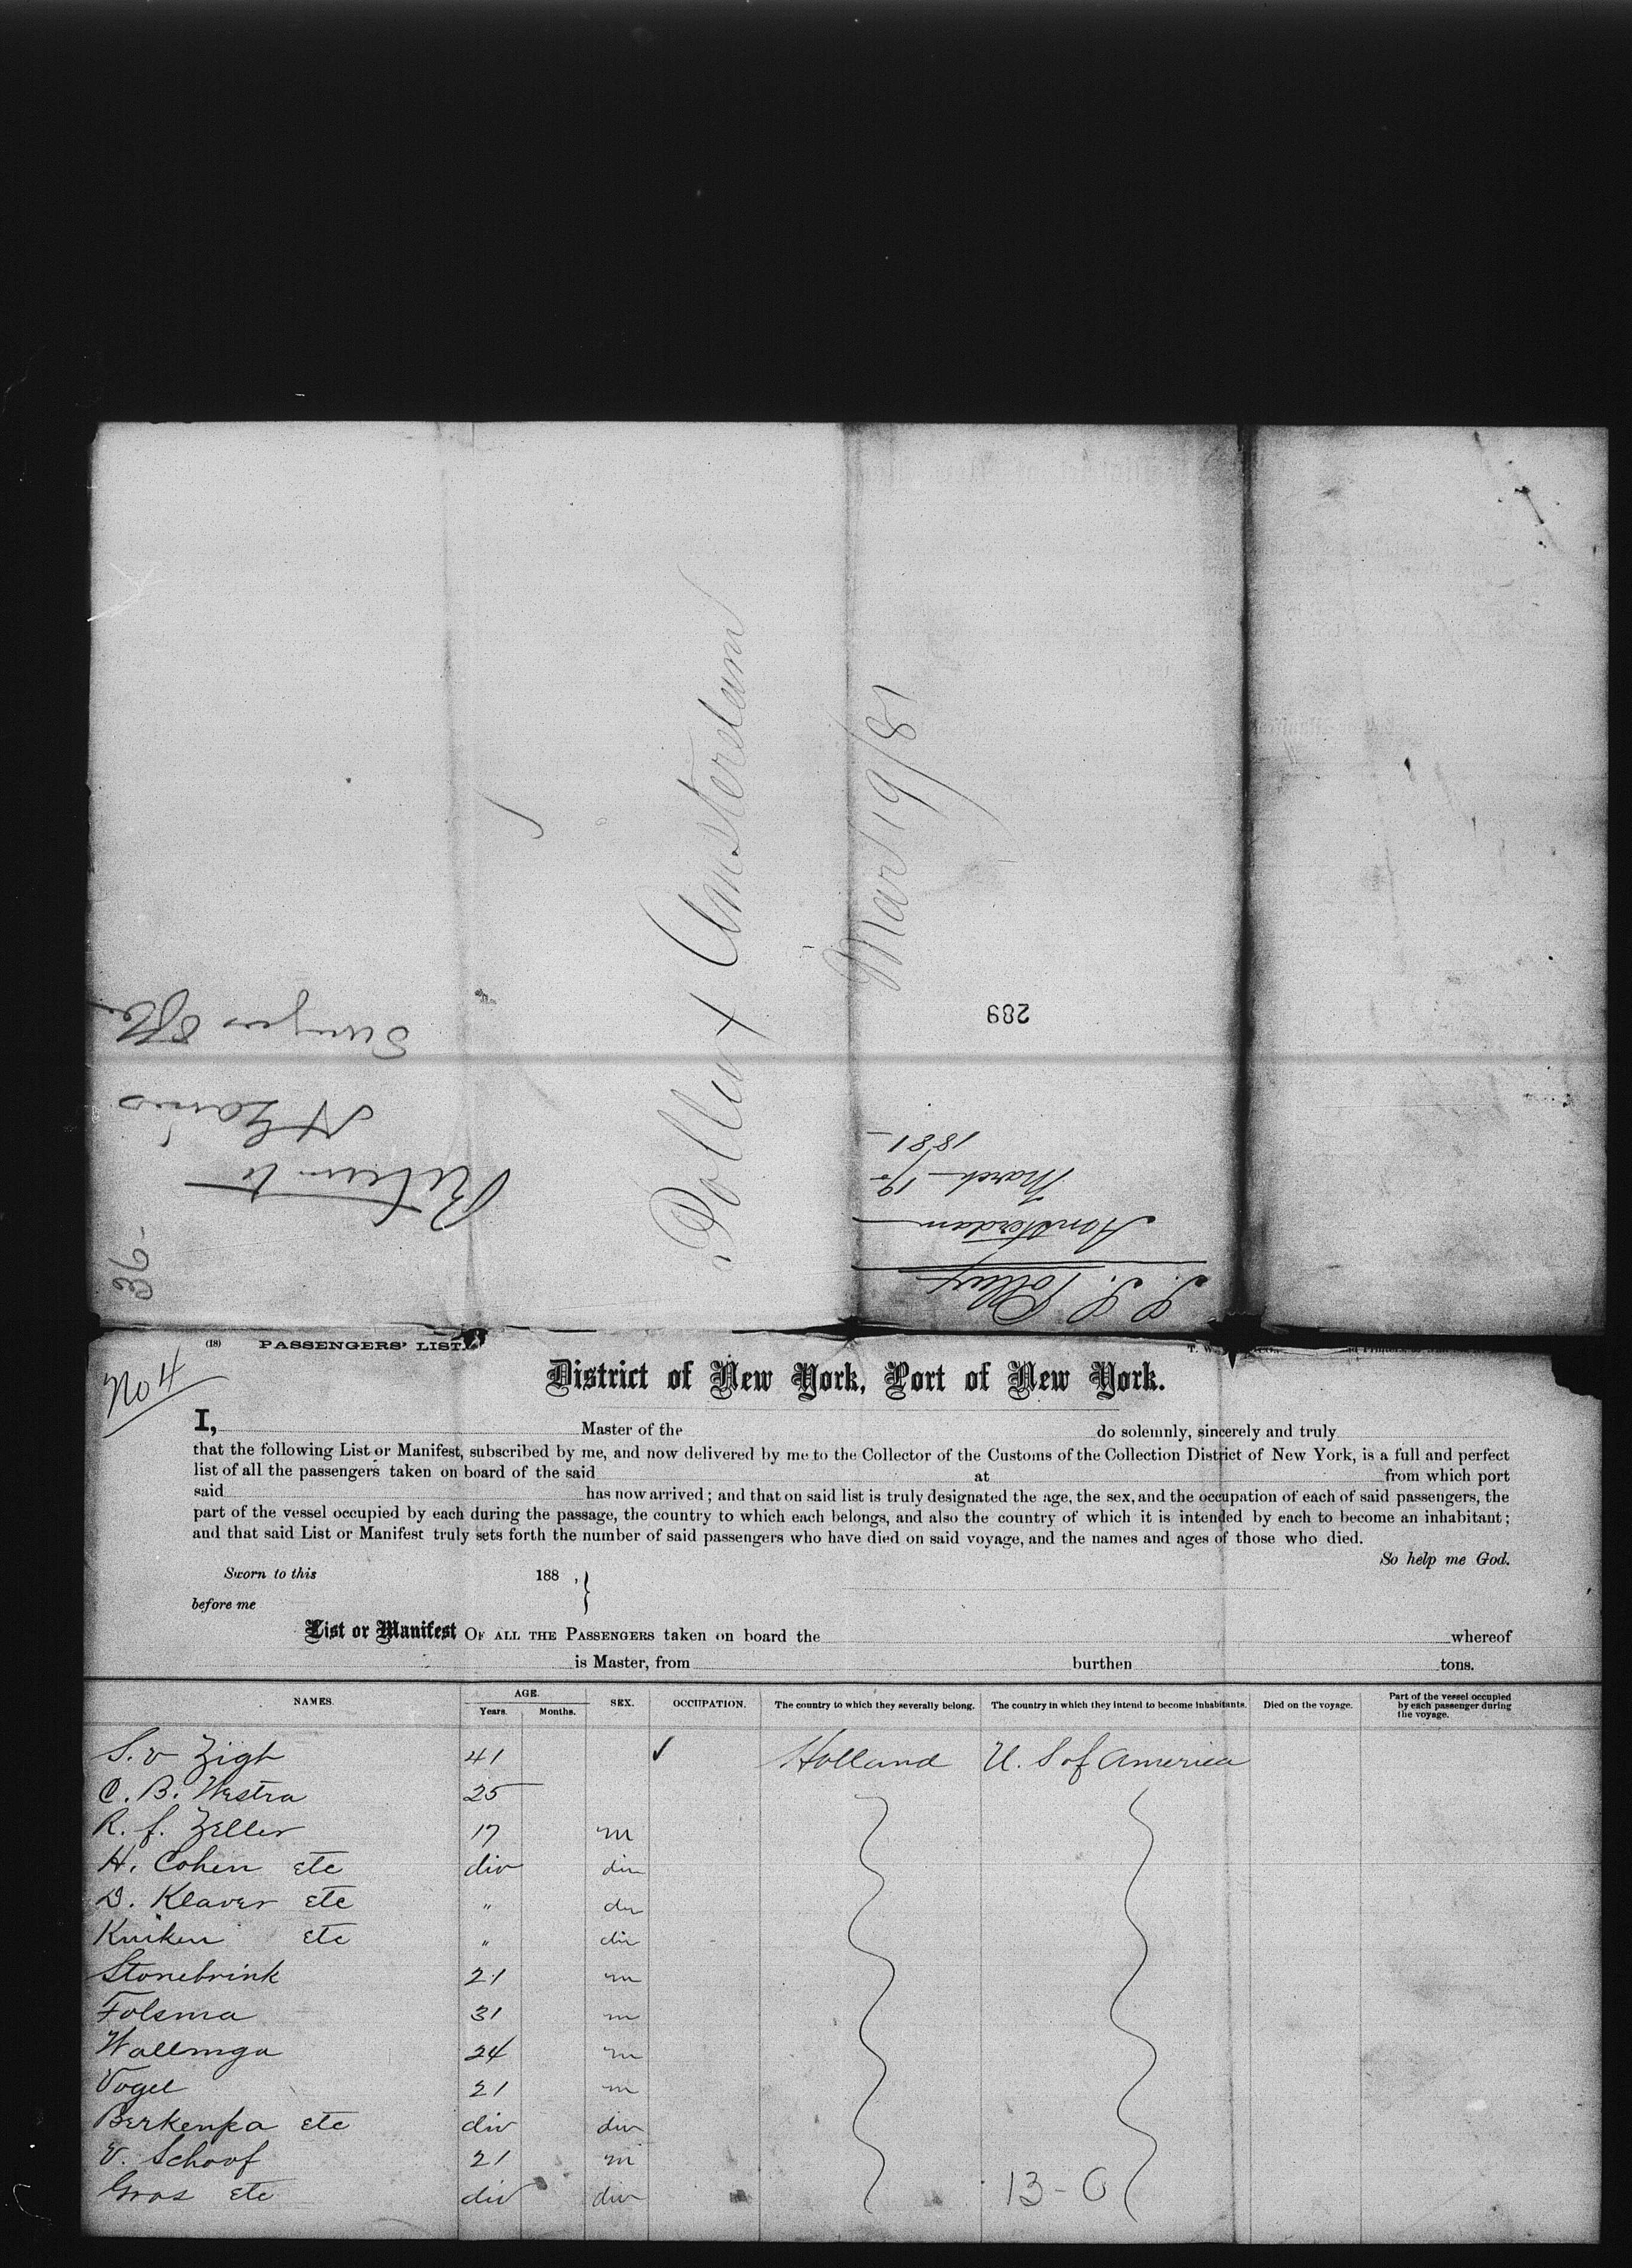 Pollux Amsterdam
Mar 19/81
289
Surveyors Office
Return to
36-
S. S. Pollux
Amsterdam
March 19
1881
(18) PASSENGERS' LIST.
No 4
District of New York, Port of New York.
I, Master of the do solemnly, sincerely and truly
that the following List or Manifest, subscribed by me, and now delivered by me to the Collector of the Customs of the Collection District of New York, is a full and perfect
list of all the passengers taken on board of the said at from which port
said has now arrived; and that on said list is truly designated the age, the sex, and the occupation of each of said passengers, the
part of the vessel occupied by each during the passage, the country to which each belongs, and also the country of which it is intended by each to become an inhabitant;
and that said List or Manifest truly sets forth the number of said passengers who have died on said voyage, and the names and ages of those who died.
So help me God.
Sworn to this 188 ,
before me
List or Manifest OF ALL THE PASSENGERS taken on board the whereof
is Master, from burthen tons.
NAMES. AGE. Years. Months. SEX. OCCUPATION. The country to which they severally belong. The country in which they intend to become inhabitants. Died on the voyage. Part of the vessel occupied by each passenger during the voyage.
S. v Zigt 41 Holland U. S of America
C. B. Westra 25
R. f. Zeller 17 m
H. Cohen etc div div
D. Klaver etc " div
Kniken etc " div
Stonebrink 21 m
Folsma 31 m
Wallinga 24 m
Vogel 21 m
Berkenpa etc div div
V. Schoof 21 m
Gras etc div div
13-0